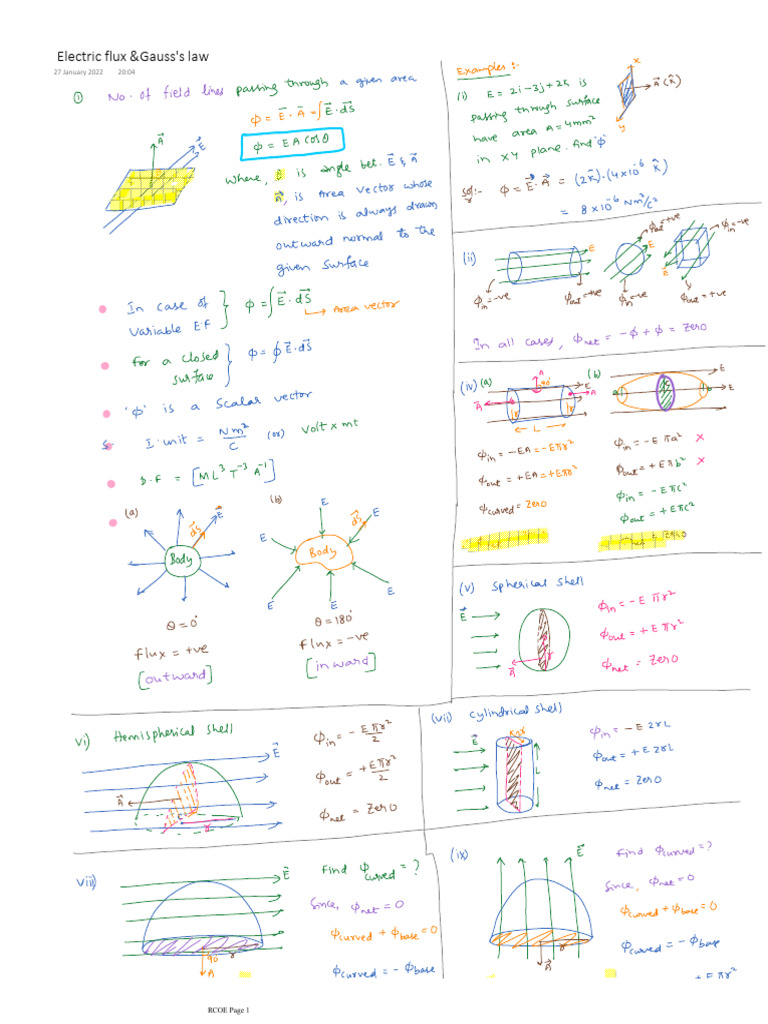 Electric flux &Gauss's law
27 January 2022 20:04
① No. of field lines passing through a given area
ϕ = E⃗ · A⃗ = ∫E⃗ · dS⃗
ϕ = E A cosθ
A⃗
E⃗
where, θ is angle bet. E⃗ & A⃗
A⃗, is Area vector whose
direction is always drawn
outward normal to the
given surface
In case of
variable E.f } ϕ = ∫E⃗ · dS⃗
↳ Area vector
for a closed
surface } ϕ = ∮E⃗ · dS⃗
'ϕ' is a scalar vector
S. I. unit = Nm²/C (or) Volt x mt
D.F = [ML³T⁻³A⁻¹]
(a)
E⃗
dS⃗
Body
θ = 0°
flux = +ve
[outward]
(b)
E
E
E
E
E
E
dS⃗
Body
θ = 180°
flux = -ve
[inward]
Examples :-
(i) E = 2i - 3j + 2k is
passing through surface
have area A = 4mm²
in XY plane. And 'ϕ'
x
A⃗ (k̂)
y
Sol:- ϕ = E⃗ · A⃗ = (2k̂)·(4x10⁻⁶ k̂)
= 8 x 10⁻⁶ Nm²/c²
(ii)
E
ϕin = -ve
ϕout = +ve
ϕout = +ve
E
ϕin = -ve
ϕin = -ve
E
ϕout = +ve
In all cases, ϕnet = -ϕ + ϕ = zero
(iv) (a)
A
90°
E
A⃗
r
r
A
← L →
ϕin = -EA = -Eπr²
ϕout = +EA = +Eπr²
ϕcurved = Zero
(b)
E
E
a
c
b
ϕin = -Eπa² x
ϕout = +Eπb² x
ϕin = -Eπc²
ϕout = +Eπc²
(v) Spherical shell
E⃗
A⃗
r
ϕin = -Eπr²
ϕout = +Eπr²
ϕnet = Zero
vi) Hemispherical shell
E⃗
A⃗
c
r
ϕin = -Eπr²/2
ϕout = +Eπr²/2
ϕnet = Zero
(vii) cylindrical shell
E⃗
L
ϕin = -E 2rL
ϕout = +E 2rL
ϕnet = Zero
viii)
E⃗
r
90
A
Find ϕcurved = ?
Since, ϕnet = 0
ϕcurved + ϕbase = 0
ϕcurved = -ϕbase
(ix)
E⃗
r
A⃗
Find ϕcurved = ?
Since, ϕnet = 0
ϕcurved + ϕbase = 0
ϕcurved = -ϕbase
= +Eπr²
RCOE Page 1